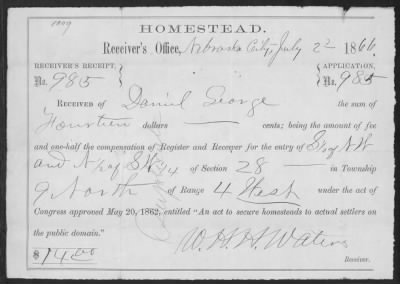 HOMESTEAD.
Receiver's Office, Nebraska City, July 22 1866.
RECEIVER'S RECEIPT, APPLICATION,
No. 985 No. 985
RECEIVED OF Daniel George the sum of
Fourteen dollars cents; being the amount of fee
and one-half the compensation of Register and Receiver for the entry of S½ of NW
and N½ of SW ¼ of Section 28 in Township
9 North of Range 4 West under the act of
Congress approved May 20, 1862, entitled "An act to secure homesteads to actual settlers on
the public domain."
$14.00 W. H. H. Waters
Receiver.